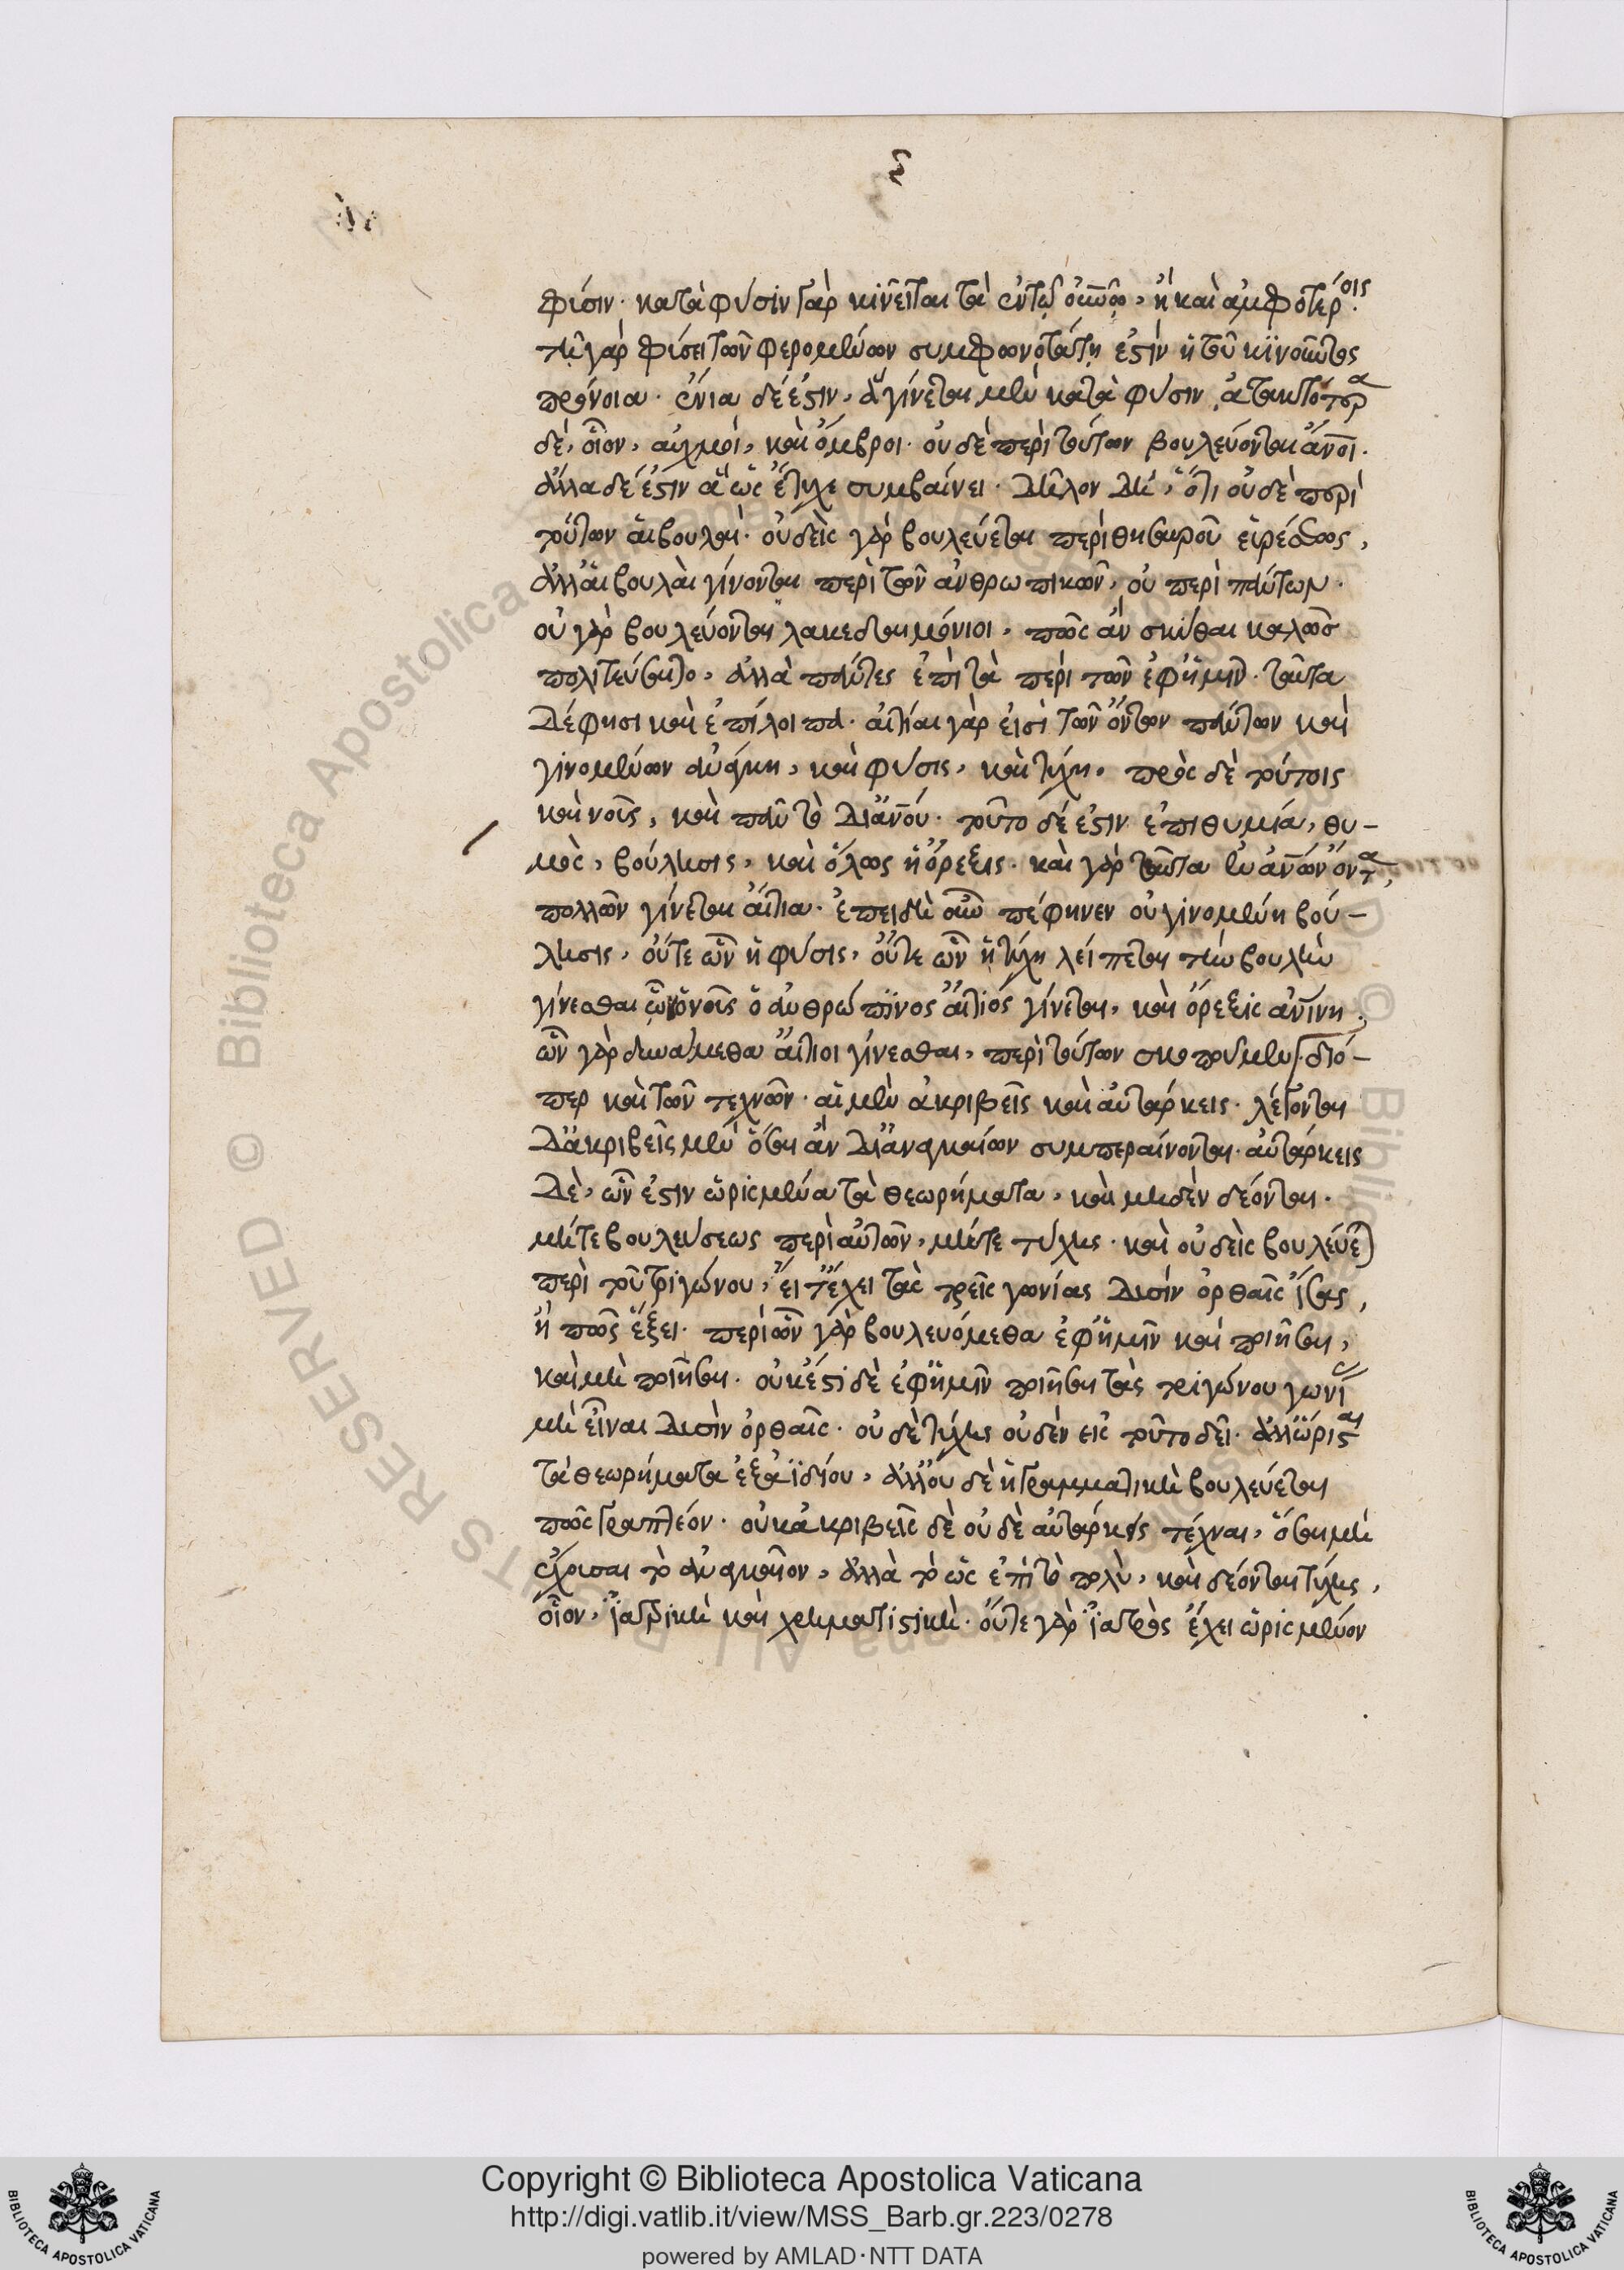 ξ
φύσιν. κατὰ φύσιν γὰρ κινεῖται τὰ ἐν τῷ οὐνῷ, ἢ καὶ ἀμφοτέροις.
τῇ γὰρ φύσει τῶν φερομένων συμφωνοτάτη ἐστὶν ἡ τοῦ κινοῦντος
πρόνοια. ἔνια δέ ἐστιν, ἃ γίνεται μὲν κατὰ φύσιν, ἀτακτότερα
δὲ, οἷον, αὐχμοὶ, καὶ ὄμβροι. οὐδὲ περὶ τούτων βουλεύονται ἄνοι.
ἄλλα δέ ἐστιν ἃ ὡς ἔτυχε συμβαίνει. δῆλον δὴ, ὅτι οὐδὲ περὶ
τούτων αἱ βουλαί. οὐδεὶς γὰρ βουλεύεται περὶ θησαυροῦ εὑρέσεως,
ἀλλ' αἱ βουλαὶ γίνονται περὶ τῶν ἀνθρωπικῶν, οὐ περὶ πάντων.
οὐ γὰρ βουλεύονται λακεδαιμόνιοι, πῶς ἂν σκύθαι καλῶς
πολιτεύσαιντο, ἀλλὰ πάντες ἐπὶ τὰ περὶ τῶν ἐφ' ἡμῖν. ταῦτα
δέ φησι καὶ ἐπίλοιπα. αἰτίαι γὰρ εἰσὶ τῶν ὄντων πάντων καὶ
γινομένων ἀνάγκη, καὶ φύσις, καὶ τύχη. πρὸς δὲ τούτοις
καὶ νοῦς, καὶ πᾶν τὸ δι' ἀνού. τοῦτο δέ ἐστιν ἐπιθυμία, θυ-
μὸς, βούλησις, καὶ ὅλως ἡ ὄρεξις. καὶ γὰρ ταῦτα ἐν ἀνῶν ὄντα,
πολλῶν γίνεται αἴτια. ἐπειδὴ οὖν πέφηνεν οὐ γινομένη βού-
λησις, οὔτε ὧν ἡ φύσις, οὔτε ὧν ἡ τύχη λείπεται τὴν βουλὴν
γίνεσθαι ὧν ὁ νοῦς ὁ ἀνθρώπινος αἴτιος γίνεται, καὶ ὄρεξις ἀνίνη.
ὧν γὰρ δυνάμεθα αἴτιοι γίνεσθαι, περὶ τούτων σκοποῦμεν. διό-
περ καὶ τῶν τεχνῶν. αἱ μὲν ἀκριβεῖς καὶ αὐτάρκεις. λέγονται
δ' ἀκριβεῖς μὲν ὅσαι ἂν δι' ἀναγκαίων συμπεραίνονται. αὐτάρκεις
δὲ, ὧν ἐστιν ὡρισμένα τὰ θεωρήματα, καὶ μηδὲν δέονται.
μήτε βουλεύσεως περὶ αὐτῶν, μήτε τύχης. καὶ οὐδεὶς βουλεύε)
περὶ τοῦ τριγώνου, εἴ τ' ἔχει τὰς τρεῖς γωνίας δυσὶν ὀρθαῖς ἴσας,
ἢ πῶς ἕξει. περὶ ὧν γὰρ βουλευόμεθα ἐφ' ἡμῖν καὶ ποιῆσαι,
καὶ μὴ ποιῆσαι. οὐκ ἔστι δὲ ἐφ' ἡμῖν ποιῆσαι τὰς τριγώνου γωνί
μὴ εἶναι δυσὶν ὀρθαῖς. οὐδὲ τύχης οὐδὲν εἰς τοῦτο δεῖ. ἀλλ' ὥρισται
τὰ θεωρήματα ἐξ ἀϊδίου, ἀλλ' οὐδὲ ἡ γραμματικὴ βουλεύεται
πῶς γραπτέον. οὐκ ἀκριβεῖς δὲ οὐδὲ αὐτάρκεις τέχναι, ὅσαι μὴ
ἔχουσαι τὸ ἀναγκαῖον, ἀλλὰ τὸ ὡς ἐπὶ τὸ πολὺ, καὶ δέονται τύχης,
οἷον, ἰατρικὴ καὶ χρηματιστικὴ. οὔτε γὰρ ἰατρὸς ἔχει ὡρισμένον
Copyright © Biblioteca Apostolica Vaticana
http://digi.vatlib.it/view/MSS_Barb.gr.223/0278
powered by AMLAD·NTT DATA